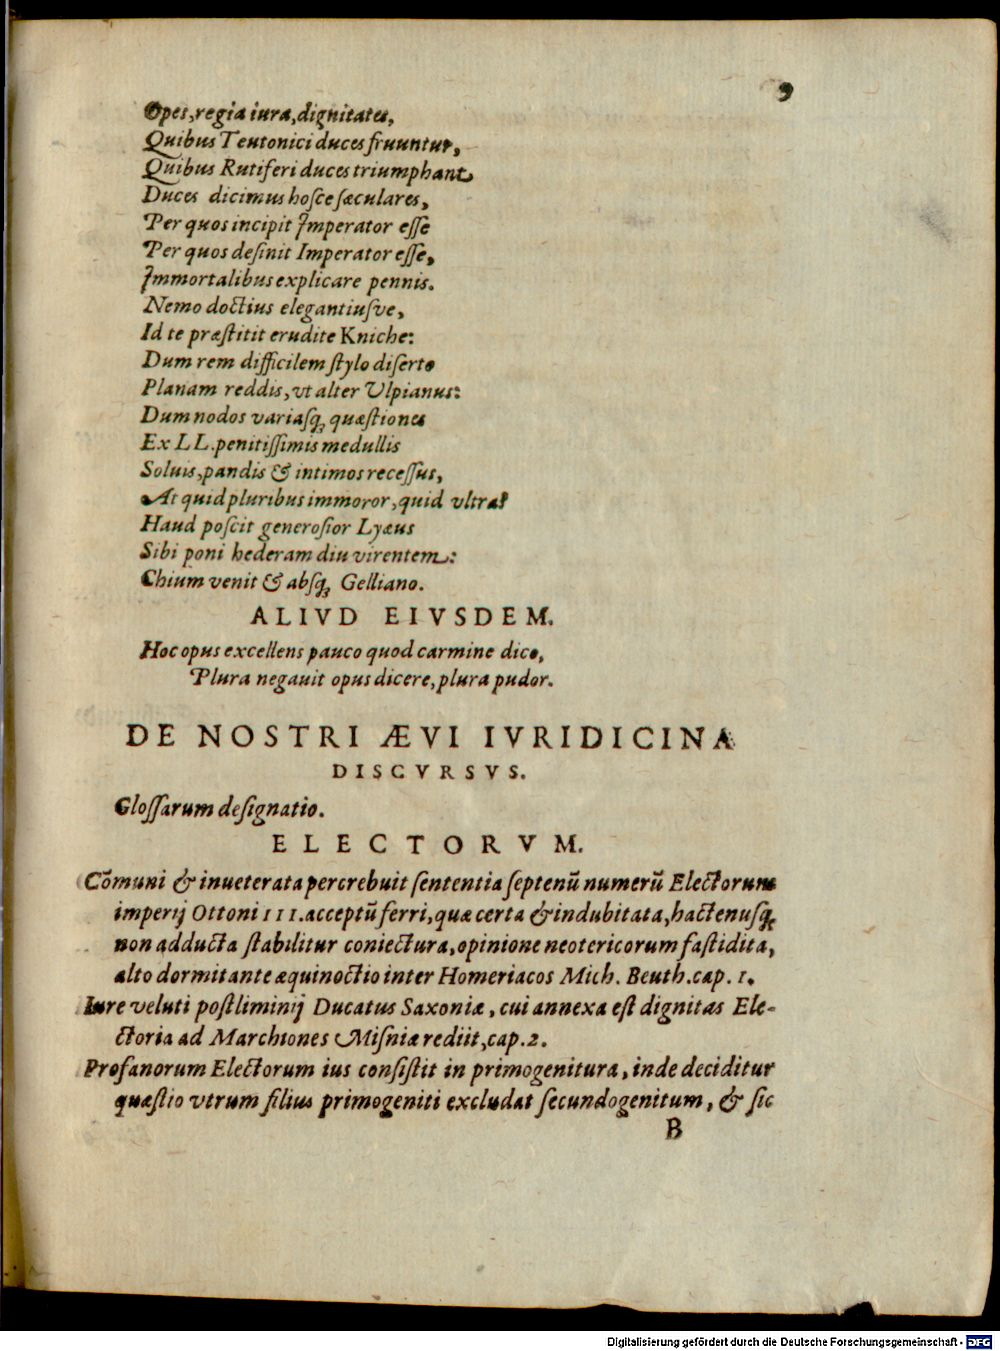 9
Opes, regia iura, dignitates,
Quibus Teutonici duces fruuntur,
Quibus Rutiferi duces triumphant
Duces dicimus hosce sæculares,
Per quos incipit Imperator esse
Per quos desinit Imperator esse,
Immortalibus explicare pennis.
Nemo doctius elegantiusve,
Id te præstitit erudite Kniche:
Dum rem difficilem stylo diserto
Planam reddis, vt alter Ulpianus:
Dum nodos variasq; quæstiones
Ex LL. penitissimis medullis
Soluis, pandis & intimos recessus,
At quid pluribus immoror, quid vltra?
Haud poscit generosior Lyæus
Sibi poni hederam diu virentem:
Chium venit & absq; Gelliano.
ALIVD EIVSDEM.
Hoc opus excellens pauco quod carmine dico,
Plura negauit opus dicere, plura pudor.
DE NOSTRI ÆVI IVRIDICINA
DISCVRSVS.
Glossarum designatio.
ELECTORVM.
Cõmuni & inueterata percrebuit sententia septenũ numerũ Electorum
imperij Ottoni III. acceptũ ferri, quæ certa & indubitata, hactenusq;
non adducta stabilitur coniectura, opinione neotericorum fastidita,
alto dormitante æquinoctio inter Homeriacos Mich. Beuth. cap. 1.
Iure veluti postliminij Ducatus Saxoniæ, cui annexa est dignitas Ele-
ctoria ad Marchiones Misniæ rediit, cap. 2.
Profanorum Electorum ius consistit in primogenitura, inde deciditur
quæstio vtrum filius primogeniti excludat secundogenitum, & sic
B
Digitalisierung gefördert durch die Deutsche Forschungsgemeinschaft - DFG